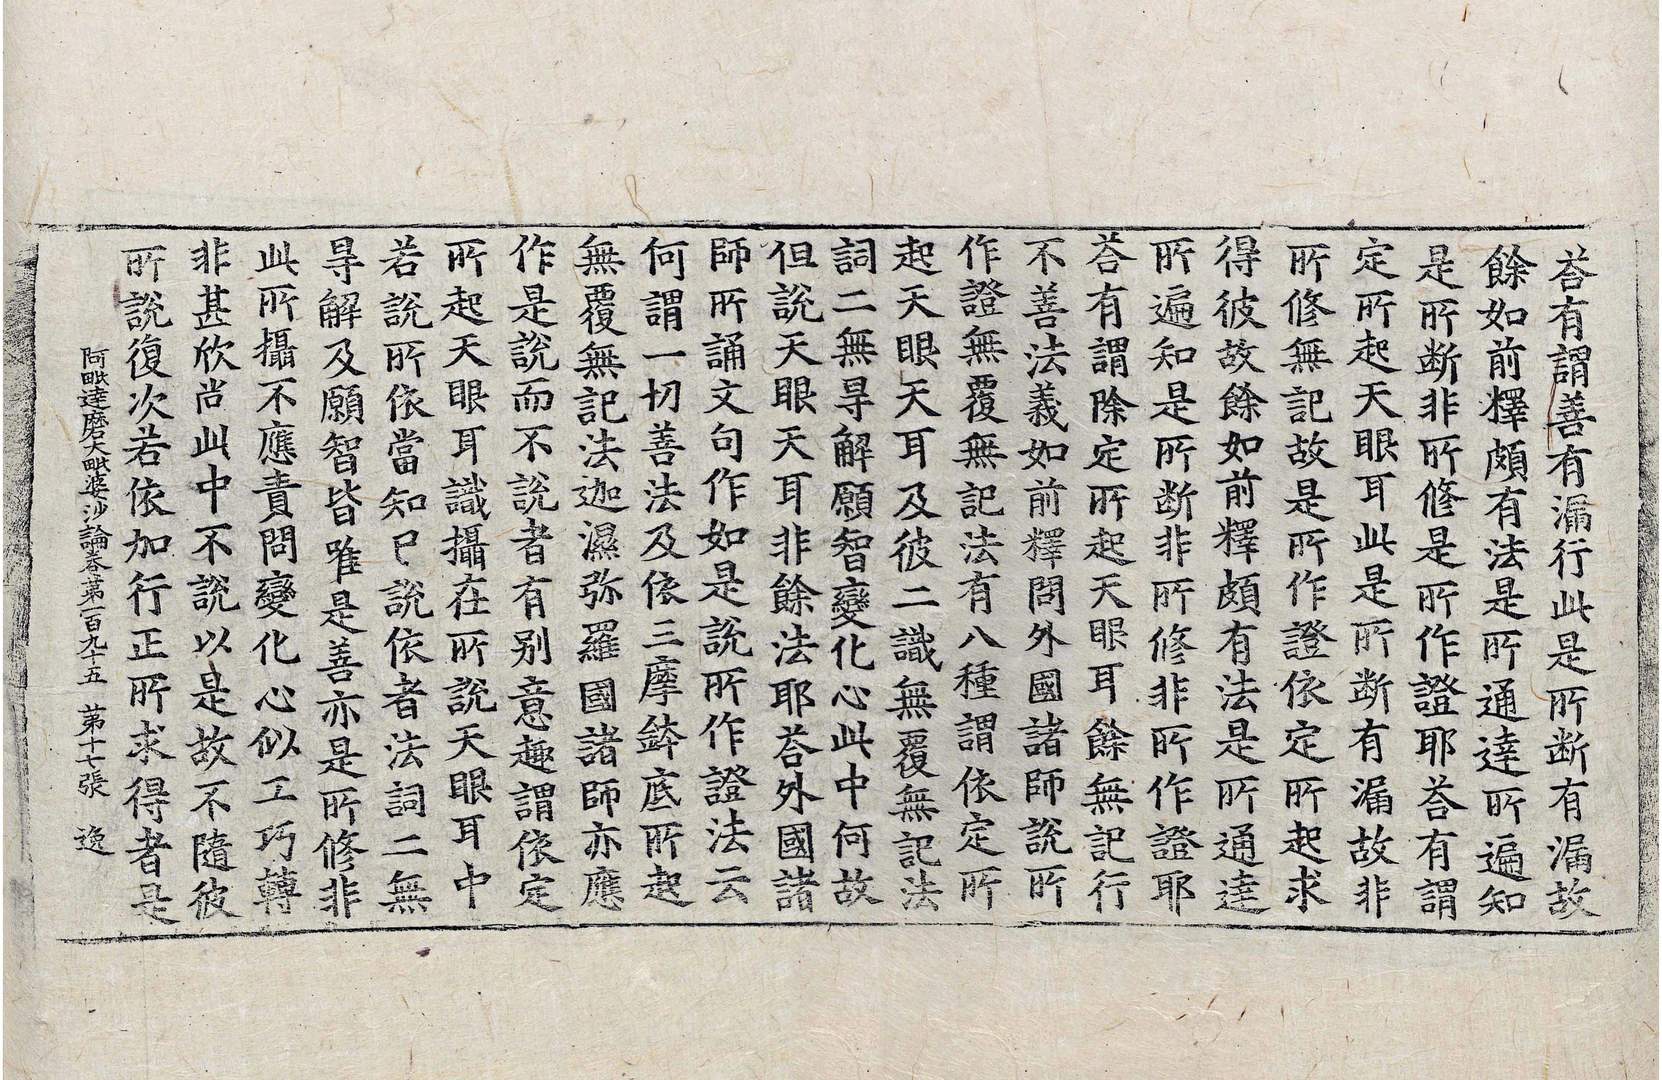 荅有謂善有漏行此是所断有漏故
餘如前釋頗有法是所通達所遍知
是所断非所修是所作證耶荅有謂
定所起天眼耳此是所断有漏故非
所修無記故是所作證依定所起求
得彼故餘如前釋頗有法是所通達
所遍知是所断非所修非所作證耶
荅有謂除定所起天眼耳餘無記行
不善法義如前釋問外國諸師說所
作證無覆無記法有八種謂依定所
起天眼天耳及彼二識無覆無記法
詞二無㝵解願智變化心此中何故
但說天眼天耳非餘法耶荅外國諸
師所誦文句作如是說所作證法云
何謂一切善法及依三摩鉢底所起
無覆無記法迦濕弥羅國諸師亦應
作是說而不說者有別意趣謂依定
所起天眼耳識攝在所說天眼耳中
若說所依當知已說依者法詞二無
㝵解及願智皆唯是善亦是所修非
此所攝不應責問變化心似工巧轉
非甚欣尚此中不說以是故不隨彼
所說復次若依加行正所求得者是
阿毗達磨大毗婆沙論卷第一百九十五　第十七張　逸